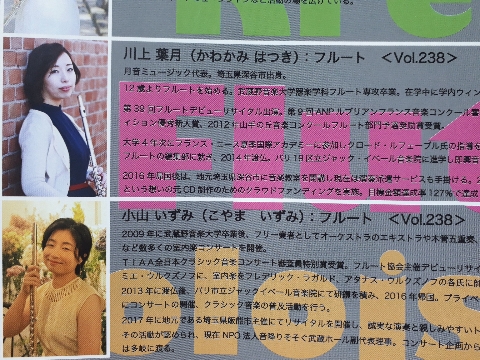 川上 葉月（かわかみ はつき）：フルート ＜Vol.238＞
月音ミュージック代表。埼玉県深谷市出身。
12歳よりフルートを始める。武蔵野音楽大学器楽学科フルート専攻卒業。在学中に学内ウィン
第39回フルートデビューリサイタル出演。第9回ANPルブリアンフランス音楽コンクール
イション優秀新人賞、2012年山手の丘音楽コンクールフルート部門予選奨励賞受賞。
大学4年次にフランス・ニース夏季国際アカデミーに参加しクロード・ルフェーブル氏の指導を
フルートの編集部に就き、2014年渡仏。パリ19区立ジャック・イベール音楽院に進学し即興音
2016年帰国後は、地元埼玉県深谷市に音楽教室を開講し現在は演奏派遣サービスも手掛ける。2
という想いの元CD制作のためのクラウドファンディングを実施。目標金額達成率127%で達成
小山 いずみ（こやま いずみ）：フルート ＜Vol.238＞
2009年に武蔵野音楽大学卒業後、フリー奏者としてオーケストラのエキストラや木管五重奏、
など数多くの室内楽コンサートを開催。
TIAA全日本クラシック音楽コンサート審査員特別賞受賞。フルート協会主催デビューリサイ
ミエ・ウルクズノフに、室内楽をフレデリック・フガルド、アタナス・ウルクズノフの各氏に師
2013年に渡仏後、パリ市立ジャックイベール音楽院にて研鑽を積み、2016年帰国。プライベ
にコンサートの開催、クラシック音楽の普及活動を行う。
2017年に地元である埼玉県飯能市主催にてリサイタルを開催し、誠実な演奏と親しみやすいト
その活動が認められ、現在NPO法人音降りそそぐ武蔵ホール副代表理事。コンサート企画から
は多岐に渡る。